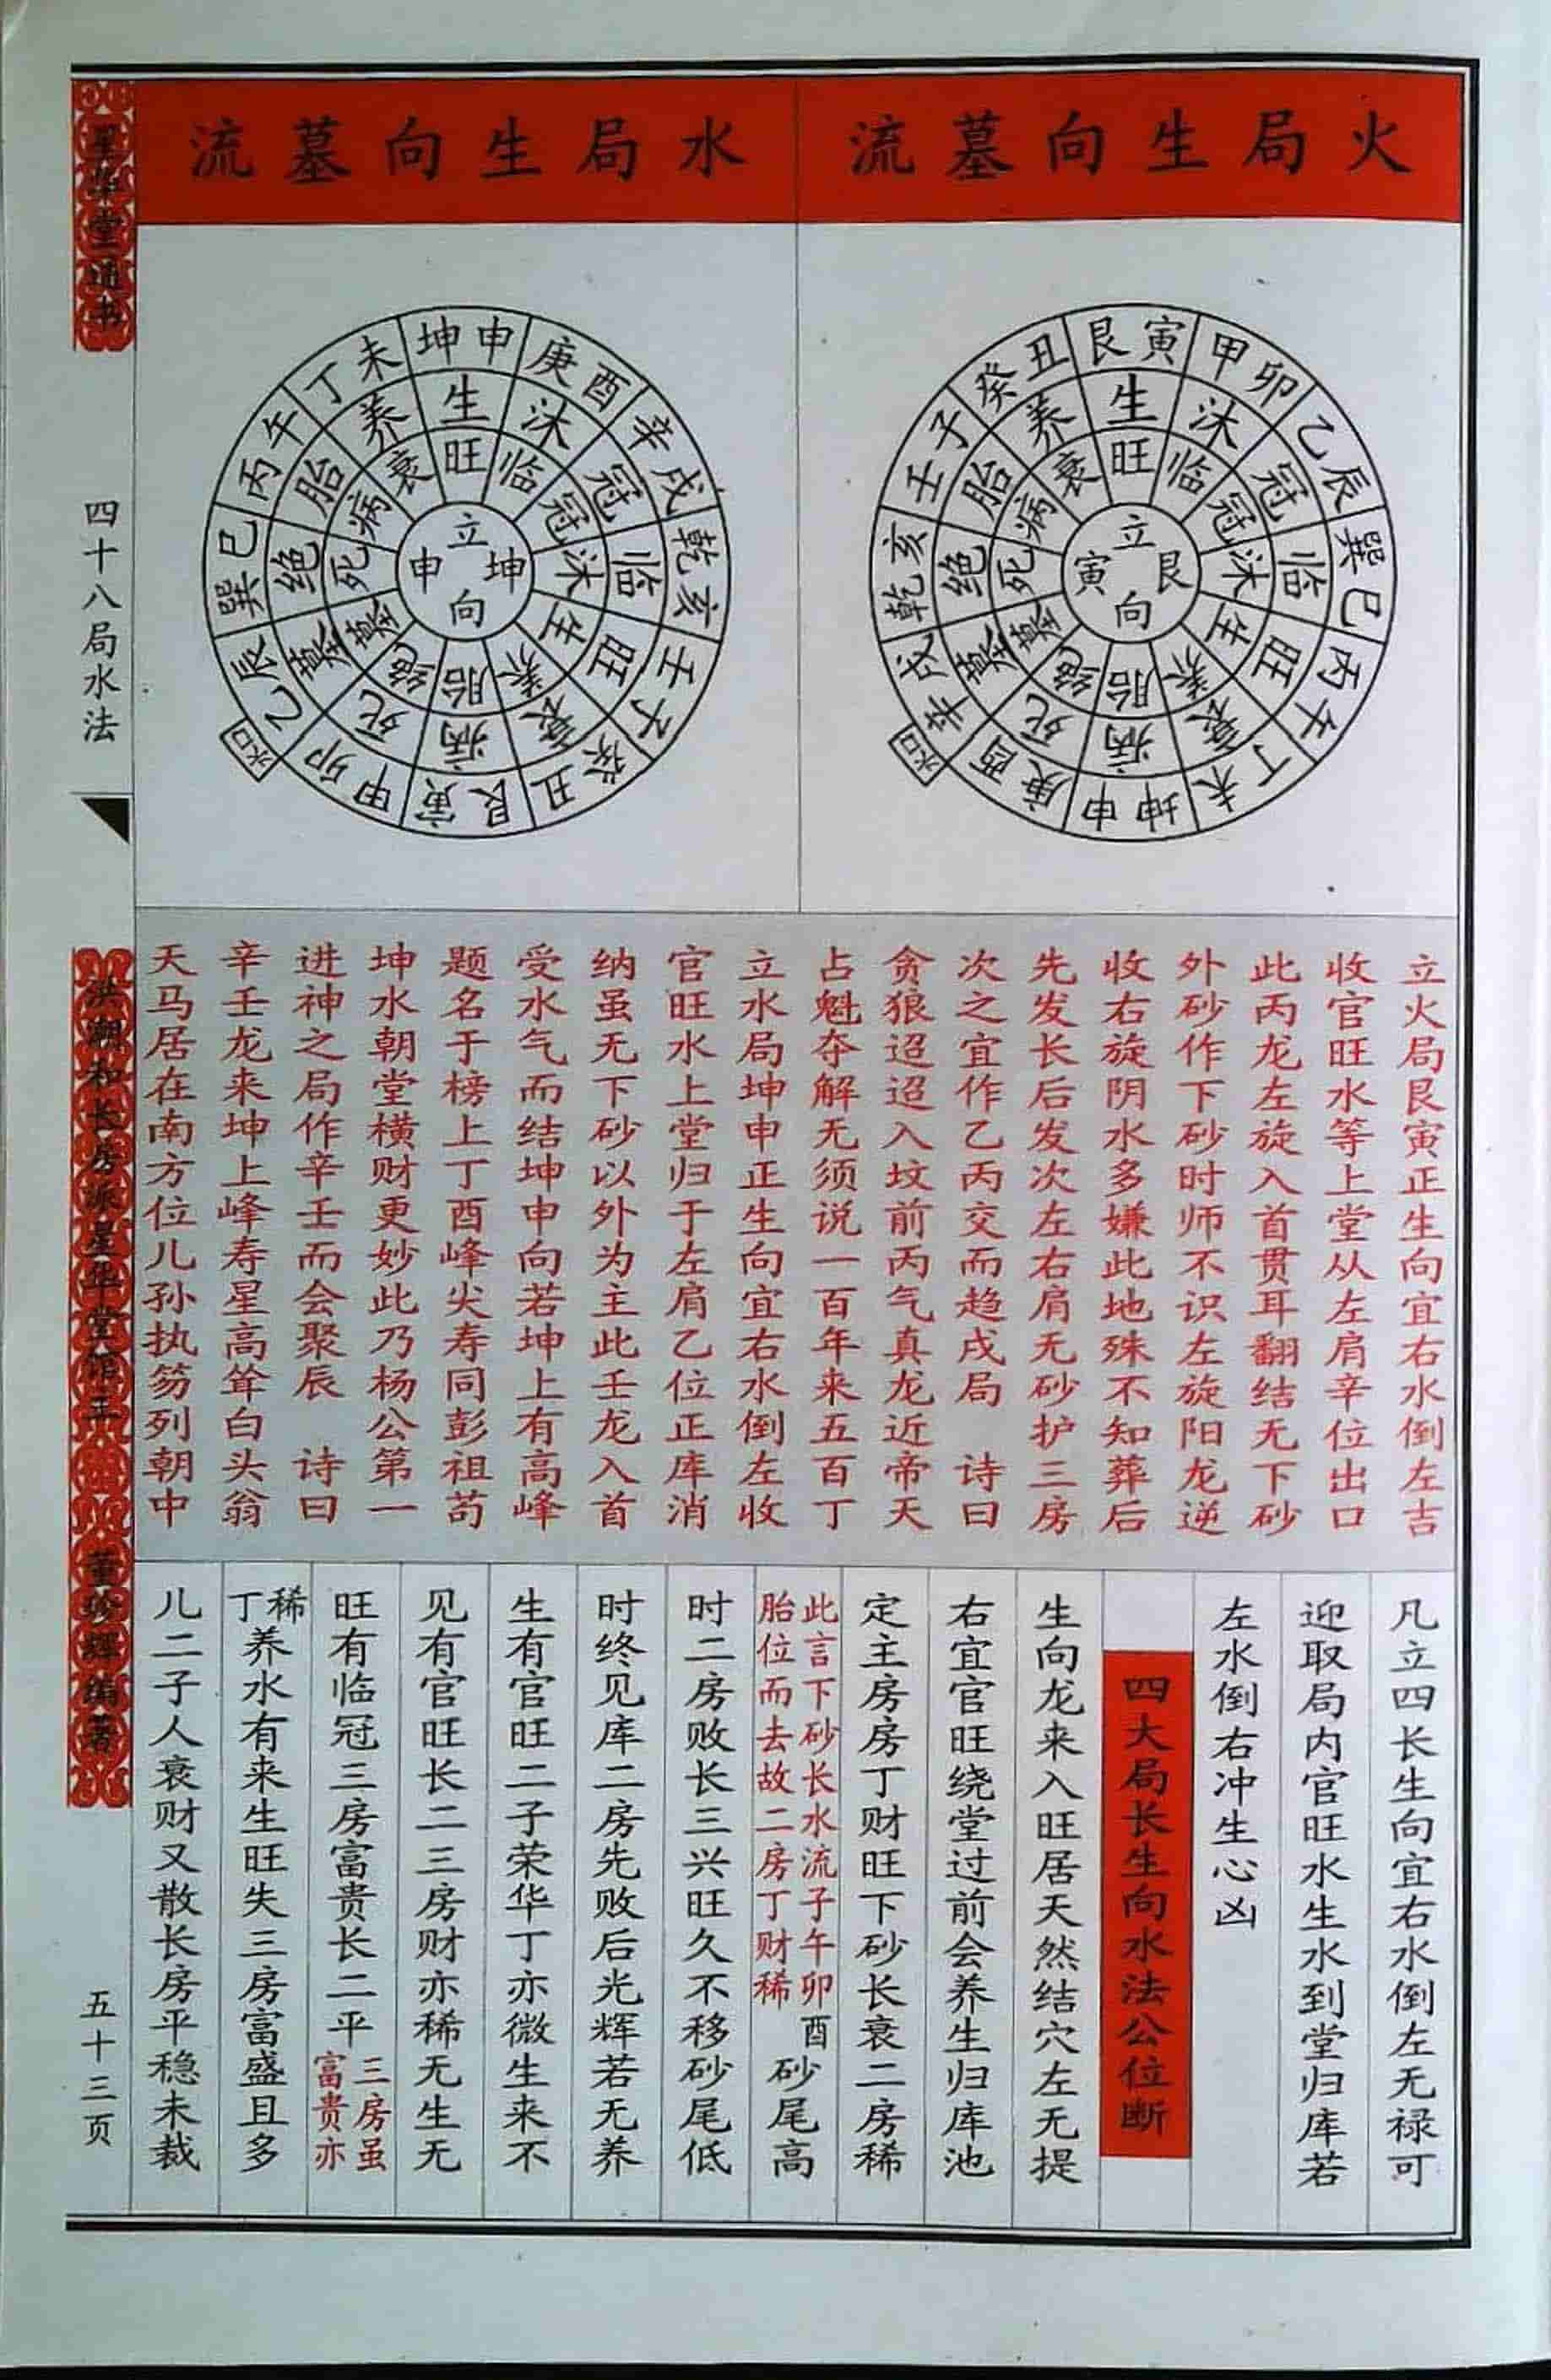 火局生向墓流
艮寅 甲卯 乙辰 巽巳 丙午 丁未 坤申 庚酉 辛戌 乾亥 壬子 癸丑
生 沐 冠 临 旺 衰 病 死 墓 绝 胎 养
旺 临 冠 沐 生 养 胎 绝 墓 死 病 衰
立艮寅向
水口
水局生向墓流
坤申 庚酉 辛戌 乾亥 壬子 癸丑 艮寅 甲卯 乙辰 巽巳 丙午 丁未
生 沐 冠 临 旺 衰 病 死 墓 绝 胎 养
旺 临 冠 沐 生 养 胎 绝 墓 死 病 衰
立坤申向
水口
立火局艮寅正生向宜右水倒左吉
收官旺水等上堂从左肩辛位出口
此丙龙左旋入首贯耳翻结无下砂
外砂作下砂时师不识左旋阳龙逆
收右旋阴水多嫌此地殊不知葬后
先发长后发次左右肩无砂护三房
次之宜作乙丙交而趋戌局 诗曰
贪狼迢迢入坟前丙气真龙近帝天
占魁夺解无须说一百年来五百丁
立水局坤申正生向宜右水倒左收
官旺水上堂归于左肩乙位正库消
纳虽无下砂以外为主此壬龙入首
受水气而结坤申向若坤上有高峰
题名于榜上丁酉峰尖寿同彭祖苟
坤水朝堂横财更妙此乃杨公第一
进神之局作辛壬而会聚辰 诗曰
辛壬龙来坤上峰寿星高耸白头翁
天马居在南方位儿孙执笏列朝中
凡立四长生向宜右水倒左无禄可
迎取局内官旺水生水到堂归库若
左水倒右冲生心凶
四大局长生向水法公位断
生向龙来入旺居天然结穴左无提
右宜官旺绕堂过前会养生归库池
定主房房丁财旺下砂长衰二房稀
此言下砂长水流子午卯酉
胎位而去故二房丁财稀
砂尾高
时二房败长三兴旺久不移砂尾低
时终见库二房先败后光辉若无养
生有官旺二子荣华丁亦微生来不
见有官旺长二三房财亦稀无生无
旺有临冠三房富贵长二平
三房虽
富贵亦
稀
丁
养水有来生旺失三房富盛且多
儿二子人衰财又散长房平稳未裁
星华堂通书
四十八局水法
洪潮和长房派星华堂馆主
董珍辉编著
五十三页